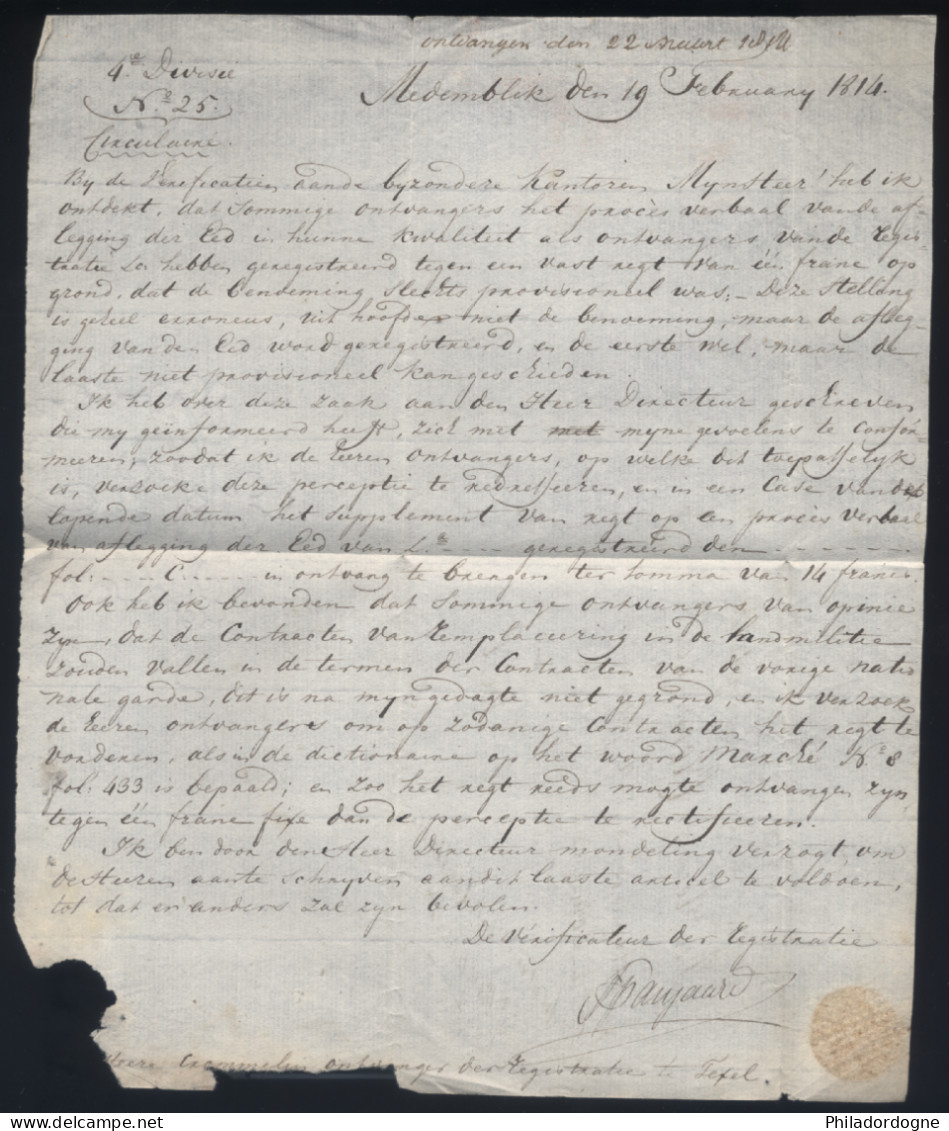 ontvangen den 22 Maart 1814
4e Divisie
No 25.
Medemblik den 19 February 1814.
Circulaire.
By de Verificatien aande byzondere Kantoren, MynHeer! heb ik
ontdekt, dat sommige ontvangers het procès verbaal van de af-
legging der Eed in hunne kwaliteit als ontvangers van de Regis-
tratie zo hebben geregistreerd tegen een vast regt van één franc op
grond, dat de benoeming slechts provisioneel was; – Deze stelling
is geheel erroneus, uit hoofde niet de benoeming, maar de afleg-
ging van den Eed word geregistreerd, en de eerste wel, maar de
laaste niet provisioneel kan geschieden.
Ik heb over deze zaak aan den Heer Directeur geschreven
die my geïnformeerd heeft, zich met met myne gevoelens te confor-
meeren, zoodat ik de Heeren ontvangers, op welke dit toepasselyk
is, verzoeke deze perceptie te redresseeren, en in een Case van de
lopende datum het supplement van regt op een procès verbaal
van aflegging der Eed van L.a - - - - geregistreerd den - - - - - -
fol: - - - - C: - - - - in ontvang te brengen ter somma van 14 francs.
Ook heb ik bevonden dat sommige ontvangers van opinie
zyn, dat de Contracten van remplaceering in de landmilitie
zouden vallen in de termen der Contracten van de vorige natio
nale garde, dit is na myn gedagte niet gegrond, en ik verzoek
de Heeren ontvangers om op zodanige Contracten het regt te
vorderen, als in de dictionaire op het woord Marché No 8
fol: 433 is bepaald; en zoo het regt reeds mogte ontvangen zyn
tegen één franc fixe dan de perceptie te rectifieeren.
Ik ben door den Heer Directeur mondeling verzogt, om
de Heeren aante schryven aan dit laaste articel te voldoen,
tot dat er anders zal zyn bevolen.
De Vérificateur der registratie
Heere Crommelin ontvanger der Registratie te Texel.
Philadordogne